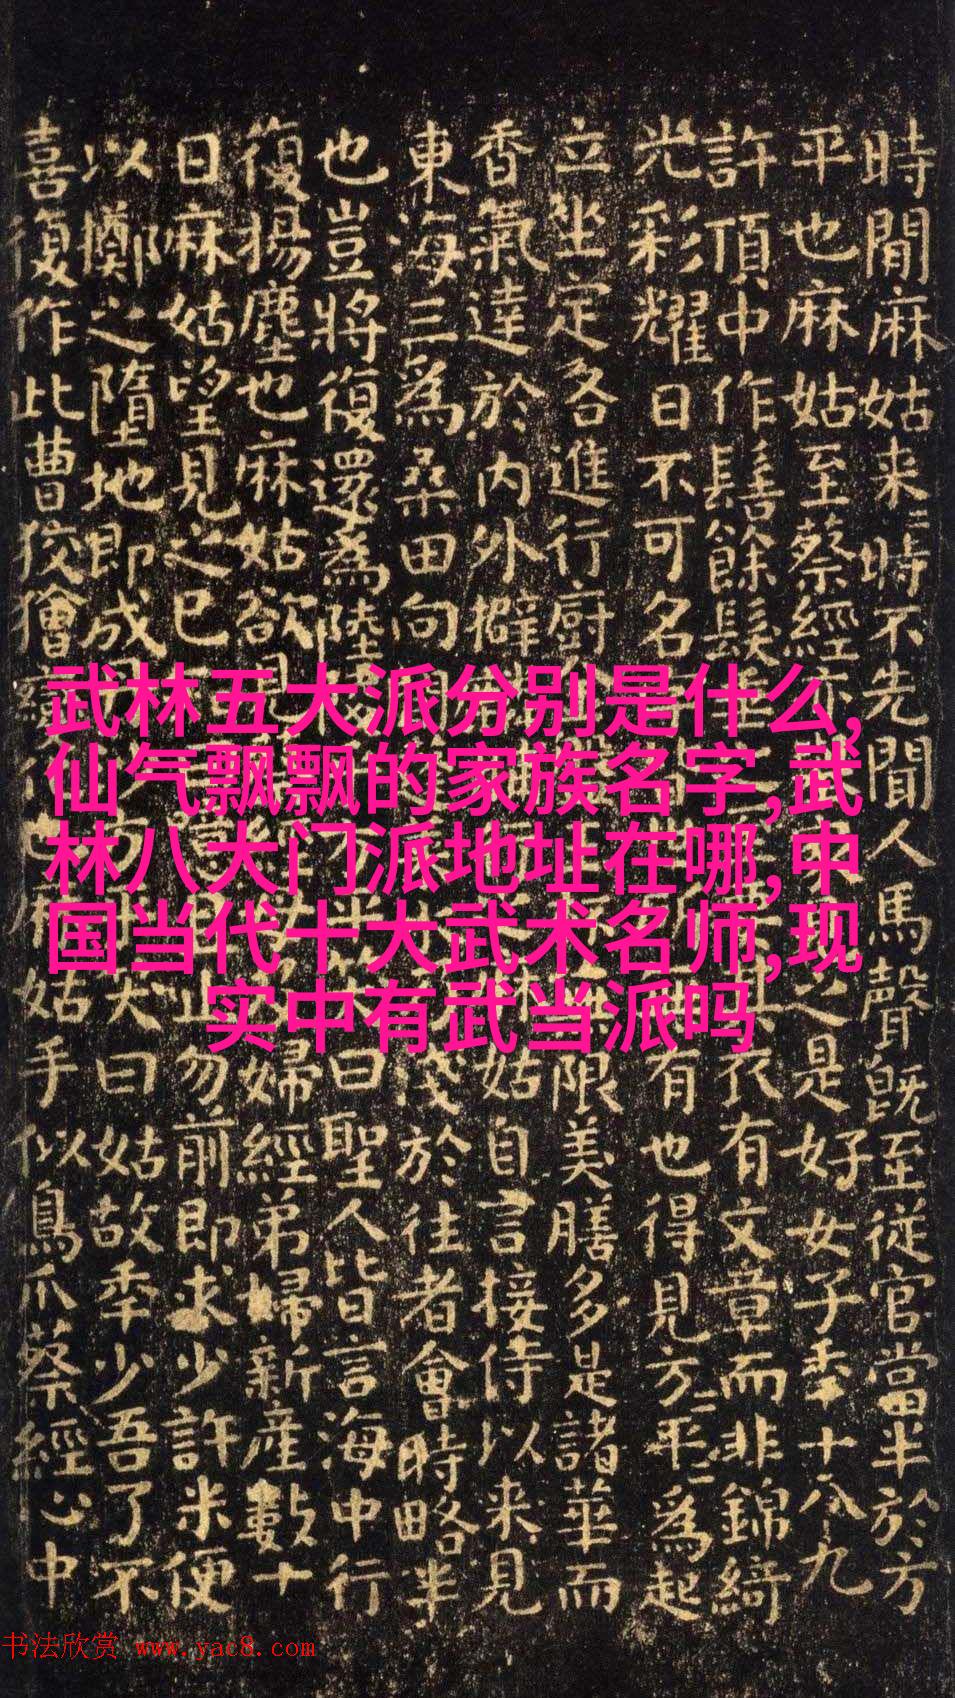 時間麻姑来二時不先聞人馬聲既至從官當半於方
平也麻姑至蔡經亦之是好女子年十八九
許頂中作髻餘髮垂其衣有文章而非錦綺
光彩耀日不可名有也得見方平二為起
立坐定各進行廚限美膳多是諸華而
香氣達於內外擗姑自言接侍以来見
東海三為桑田向淺於往者會時略半
也豈將復還為陸曰聖人皆言海中行
復揚塵也麻姑欲見婦經弟婦新產數十
日麻姑望見之已止勿前即求少許米便
以擲之墮地即成曰姑故年少吾了不
喜復作此曹狡獪也麻姑手似鳥爪蔡經心中
武林五大派分别是什么,
仙气飘飘的家族名字,武
林八大门派地址在哪,中
国当代十大武术名师,现
实中有武当派吗
书法欣赏 www.yac8.com